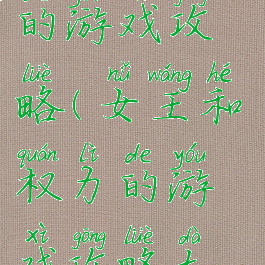 的游戏攻
lüè nǚ wáng hé
略(女王和
quán lì de yóu
权力的游
xì gōng lüè dà
戏攻略大